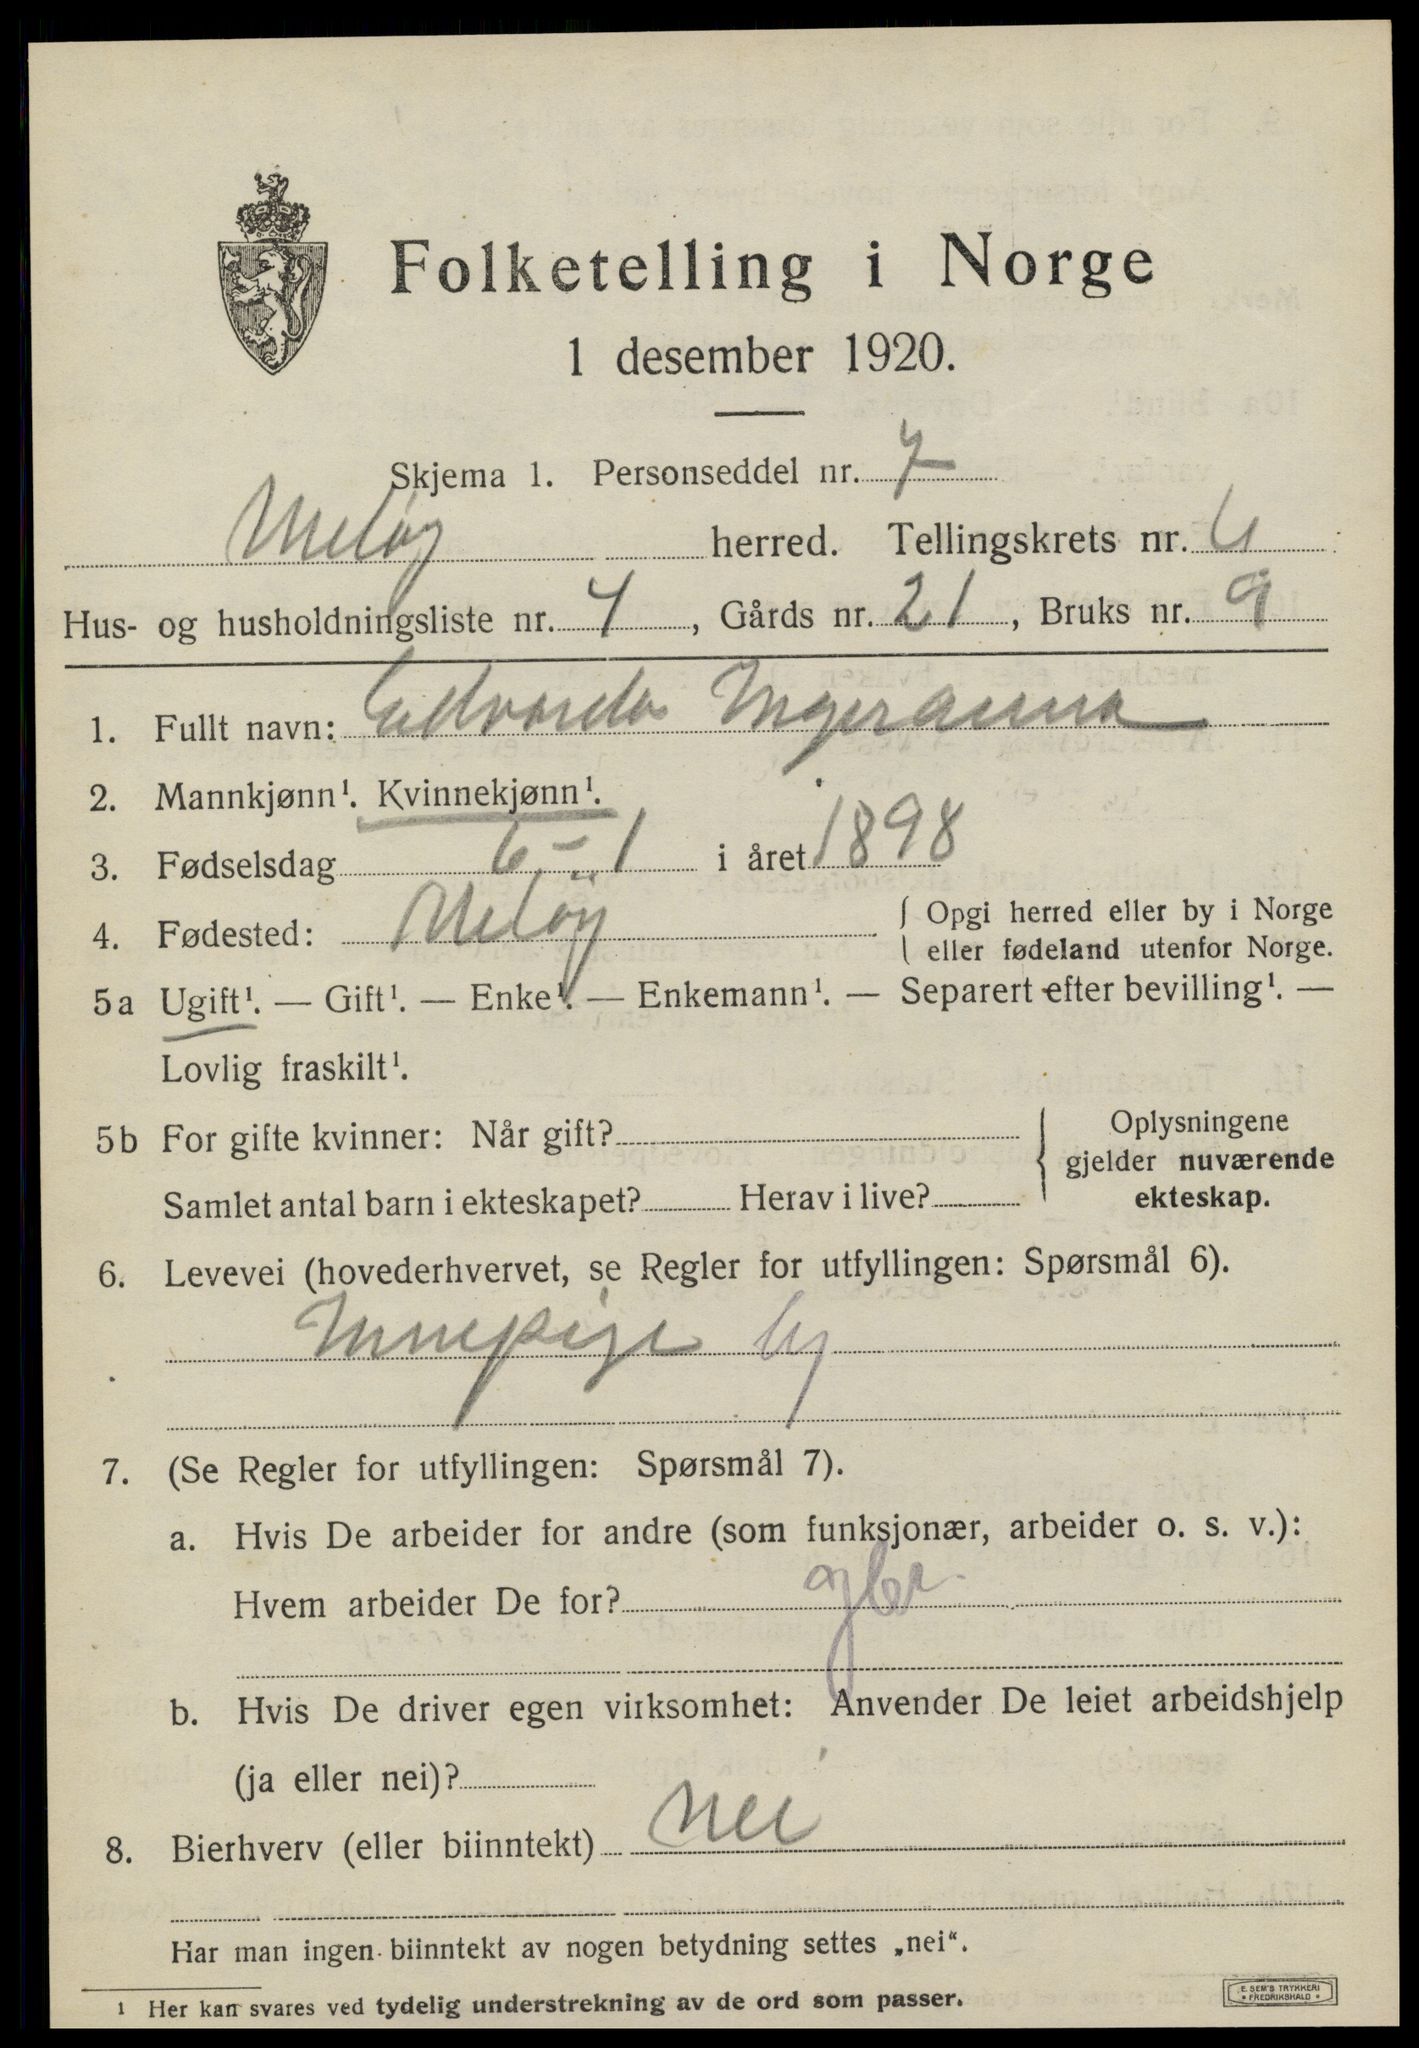 Folketelling i Norge
1 desember 1920.
Skjema 1. Personseddel nr. 7
Meløy herred. Tellingskrets nr. 6
Hus- og husholdningsliste nr. 4, Gårds nr. 21, Bruks nr. 9
1. Fullt navn: Edvarda Ingeranna
2. Mannkjønn¹. Kvinnekjønn¹.
3. Fødselsdag 6 - 1 i året 1898
4. Fødested: Meløy { Opgi herred eller by i Norge
eller fødeland utenfor Norge.
5a Ugift¹. — Gift¹. — Enke¹. — Enkemann¹. — Separert efter bevilling¹. —
Lovlig fraskilt¹.
5b For gifte kvinner: Når gift? { Oplysningene
gjelder nuværende
Samlet antal barn i ekteskapet? Herav i live? ekteskap.
6. Levevei (hovederhvervet, se Regler for utfyllingen: Spørsmål 6).
Innepige
7. (Se Regler for utfyllingen: Spørsmål 7).
a. Hvis De arbeider for andre (som funksjonær, arbeider o. s. v.):
Hvem arbeider De for?
b. Hvis De driver egen virksomhet: Anvender De leiet arbeidshjelp
(ja eller nei)?
8. Bierhverv (eller biinntekt) nei
Har man ingen biinntekt av nogen betydning settes „nei“.
1 Her kan svares ved tydelig understrekning av de ord som passer.
E. SEM'S TRYKKERI
• FREDRIKSHALD •